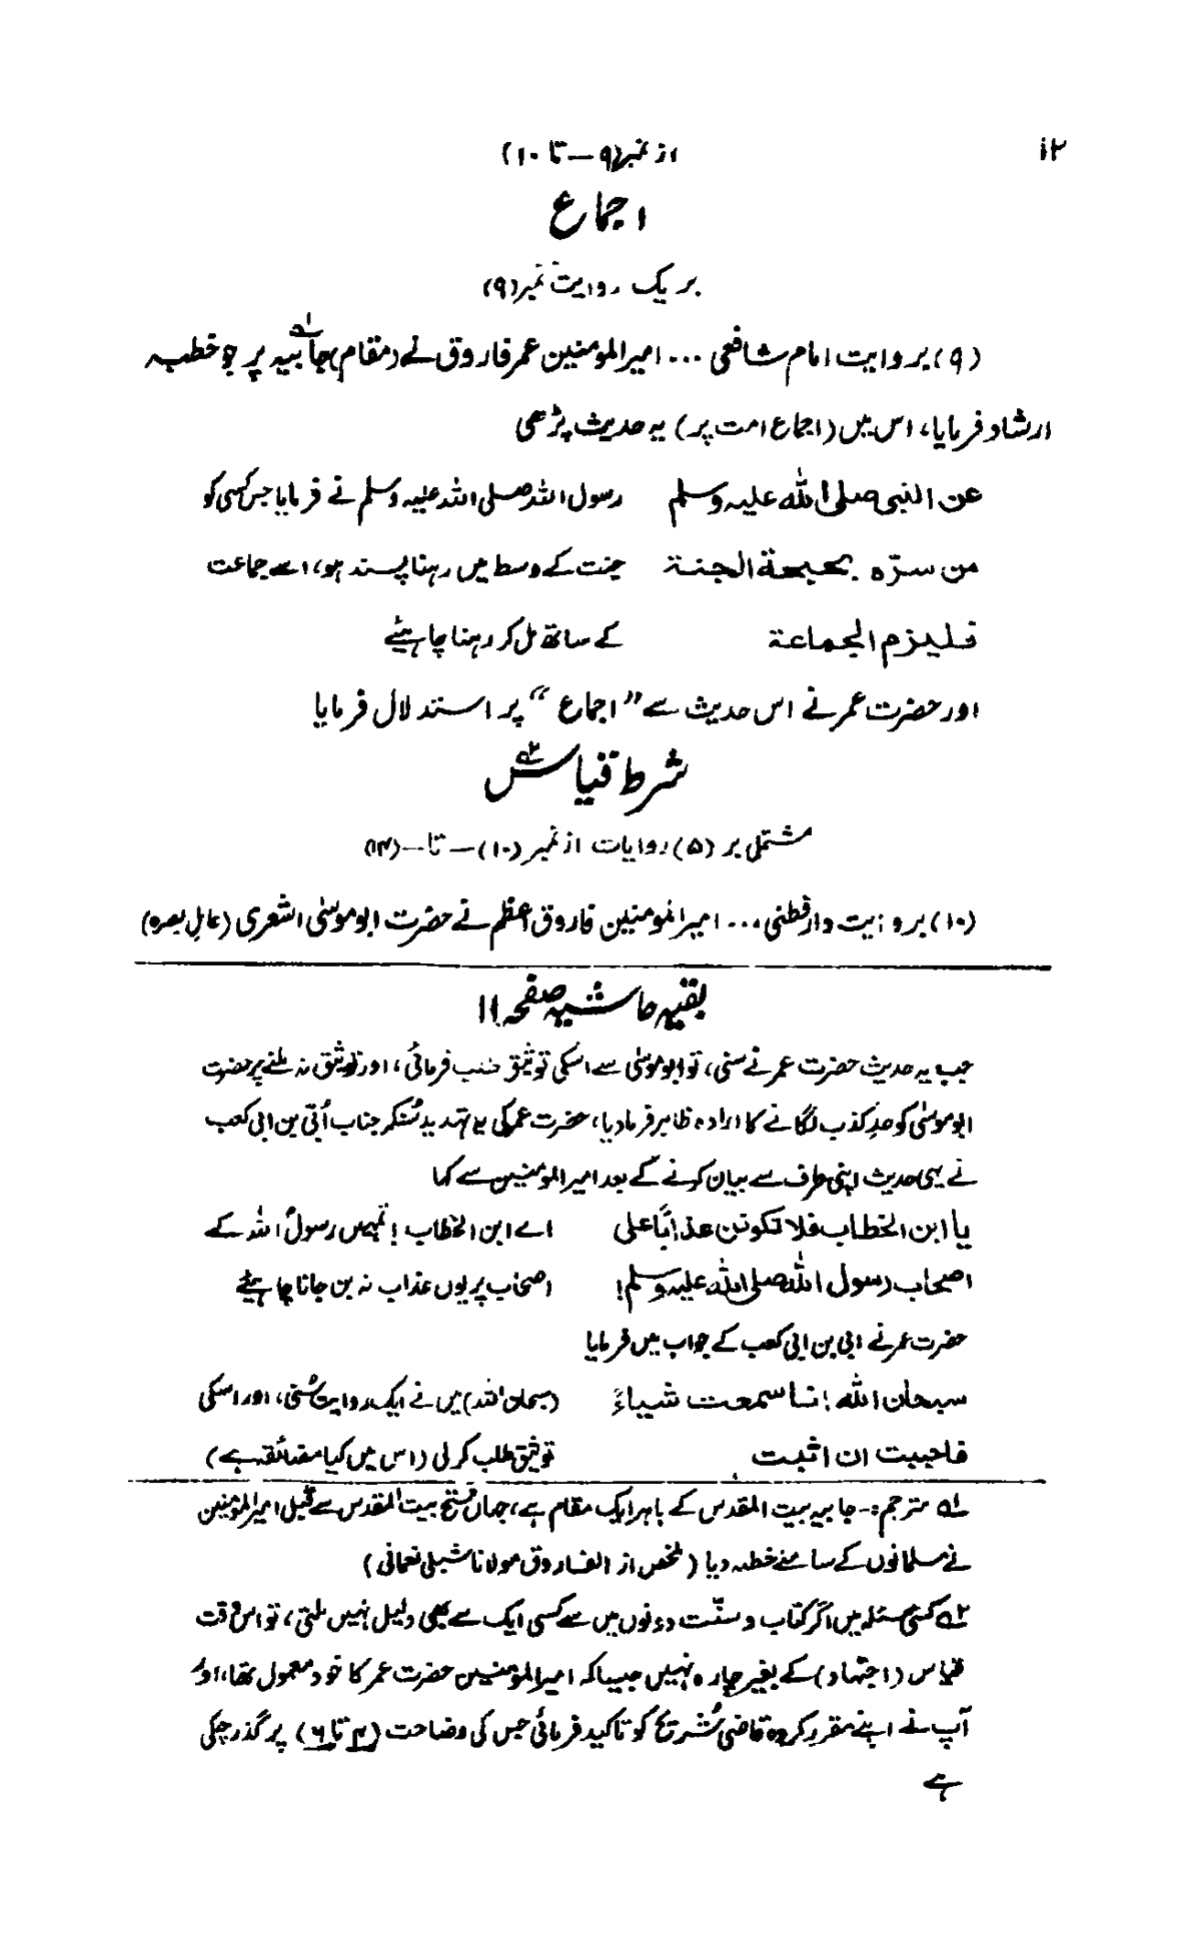 ۱۲
از نمبر (۹ – تا ۱۰)
اجماع
بر یک روایت نمبر (۹)
(۹) بروایت امام شافعی ... امیر المومنین عمر فاروق نے (مقام) جابیہ۱؎ پر جو خطبہ
ارشاد فرمایا، اس میں (اجماع امت پر) یہ حدیث پڑھی
عن النبی صلی اللہ علیہ وسلم رسول اللہ صلی اللہ علیہ وسلم نے فرمایا جس کسی کو
من سرّہ بحبحة الجنة جنت کے وسط میں رہنا پسند ہو، اسے جماعت
فلیزم الجماعة کے ساتھ مل کر رہنا چاہیئے
اور حضرت عمر نے اس حدیث سے ”اجماع“ پر استدلال فرمایا
شرط قیاس۲؎
مشتمل بر (۵) روایات از نمبر (۱۰) – تا – (۱۴)
(۱۰) بروایت دارقطنی ... امیر المومنین فاروق اعظم نے حضرت ابو موسیٰ اشعری (عاملِ بصرہ)
بقیہ حاشیہ صفحہ ۱۱
جب یہ حدیث حضرت عمر نے سنی، تو ابو موسیٰ سے اسکی توثیق طلب فرمائی، اور توثیق نہ ملنے پر حضرت
ابو موسیٰ کو حدِ کذب لگانے کا ارادہ ظاہر فرما دیا، حضرت عمر کی یہ تہدید سُنکر جناب اُبَی بن ابی کعب
نے یہی حدیث اپنی طرف سے بیان کرنے کے بعد امیر المومنین سے کہا
یا ابن الخطاب فلا تکونن عذابًا علی اے ابن الخطاب! تمہیں رسول اللہ کے
اصحاب رسول اللہ صلی اللہ علیہ وسلم! اصحاب پر یوں عذاب نہ بن جانا چاہیئے
حضرت عمر نے ابی بن ابی کعب کے جواب میں فرمایا
سبحان اللہ! انا سمعت شیاءً (سبحان اللہ) میں نے ایک روایت سُنی، اور اسکی
فاحببت ان اثبت توثیق طلب کر لی (اس میں کیا مضائقہ ہے)
۱؎ مترجم:- جابیہ بیت المقدس کے باہر ایک مقام ہے، جہاں فتح بیت المقدس سے قبل امیر المومنین
نے مسلمانوں کے سامنے خطبہ دیا (ملخص از الفاروق مولانا شبلی نعمانی)
۲؎ کسی مسئلہ میں اگر کتاب و سنّت دونوں میں سے کسی ایک سے بھی دلیل نہیں ملتی، تو اس وقت
قیاس (اجتہاد) کے بغیر چارہ نہیں جیسا کہ امیر المومنین حضرت عمر کا خود معمول تھا، اور
آپ نے اپنے مقرر کردہ قاضی شُریح کو تاکید فرمائی جس کی وضاحت (۴ تا ۶) پر گذر چکی
ہے